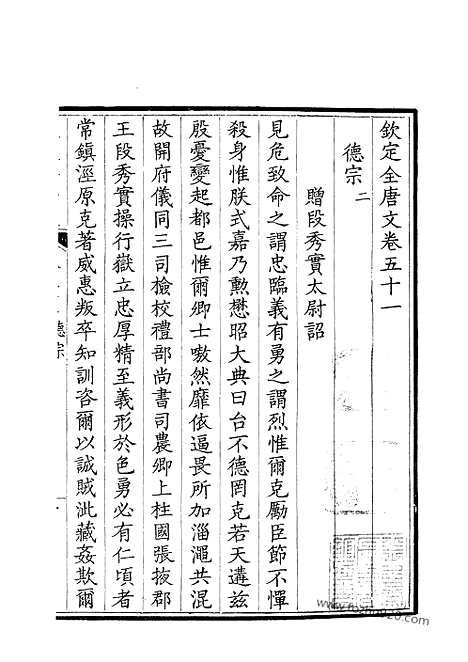 欽定全唐文卷五十一
德宗二
贈段秀實太尉詔
見危致命之謂忠臨義有勇之謂烈惟爾克勵臣節不憚
殺身惟朕式嘉乃勲懋昭大典曰台不德罔克若天遘茲
殷憂變起都邑惟爾卿士嗷然靡依逼畏所加淄澠共混
故開府儀同三司檢校禮部尚書司農卿上柱國張掖郡
王段秀實操行嶽立忠厚精至義形於色勇必有仁頃者
常鎮涇原克著威惠叛卒知訓咨爾以誠賊泚藏姦欺爾
德宗